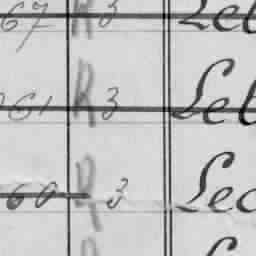 67 R 3 Let
61 R 3 Let
60 R 3 Lec